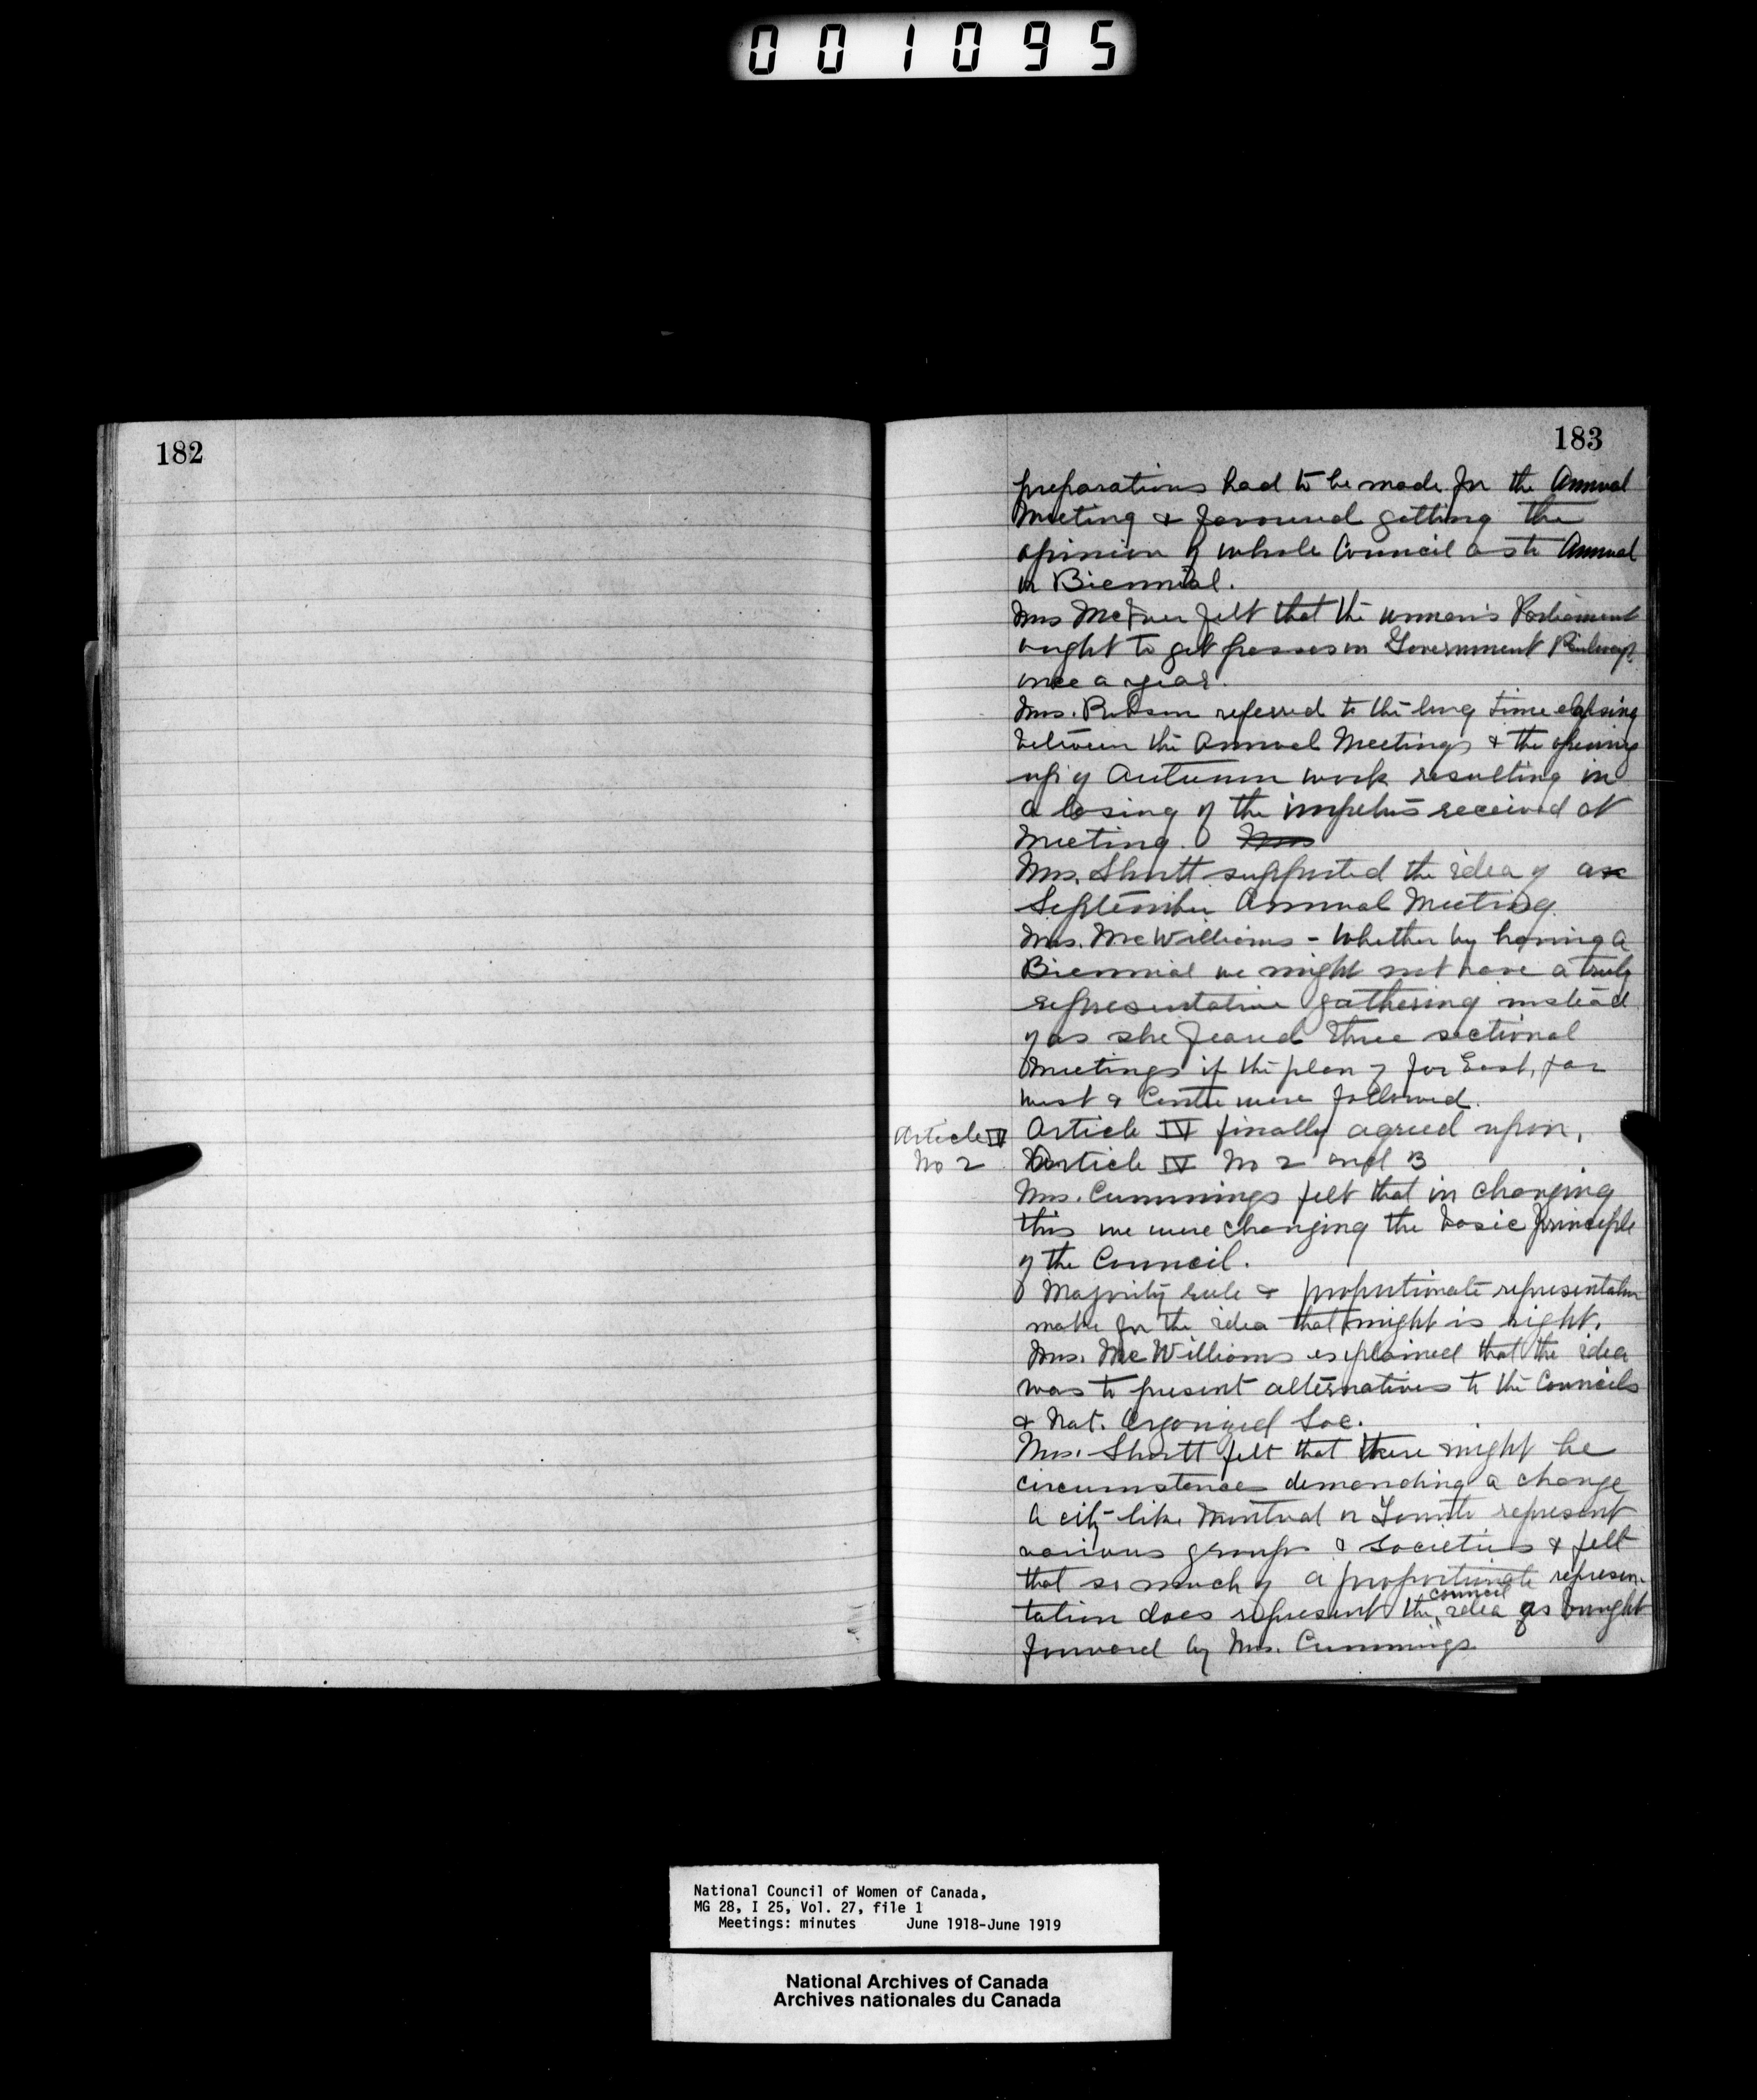 001095
182
183
preparations had to be made for the Annual
Meeting & favoured getting the
opinion of whole Council as to Annual
or Biennial.
Mrs felt that the women's Parliament
ought to get passes on Government Railways
once a year.
Mrs. Robson referred to the long time elapsing
between the Annual Meetings & the opening
up of Autumn work resulting in
a losing of the impetus received at
Meeting. Mrs
Mrs. Shortt supported the idea of a
September Annual Meeting.
Mrs. McWilliams - Whether by having a
Biennial we might not have a truly
representative gathering instead
of as she feared three sectional
Meetings if the plan of far East, far
West & Centre were followed.
Article IV
No 2
Article IV finally agreed upon,
Article IV No 2 and 3
Mrs. Cummings felt that in changing
this we were changing the basic principle
of the Council.
Majority rule & proportionate representation
make for the idea that might is right.
Mrs. McWilliams explained that the idea
was to present alternatives to the Councils
& Nat. Organized Soc.
Mrs. Shortt felt that there might be
circumstances demanding a change
A city like Montreal or Toronto represent
various groups & societies & felt
that so much of a proportionate represen-
tation does represent the council idea as brought
forward by Mrs. Cummings
National Council of Women of Canada,
MG 28, I 25, Vol. 27, file 1
Meetings: minutes June 1918-June 1919
National Archives of Canada
Archives nationales du Canada